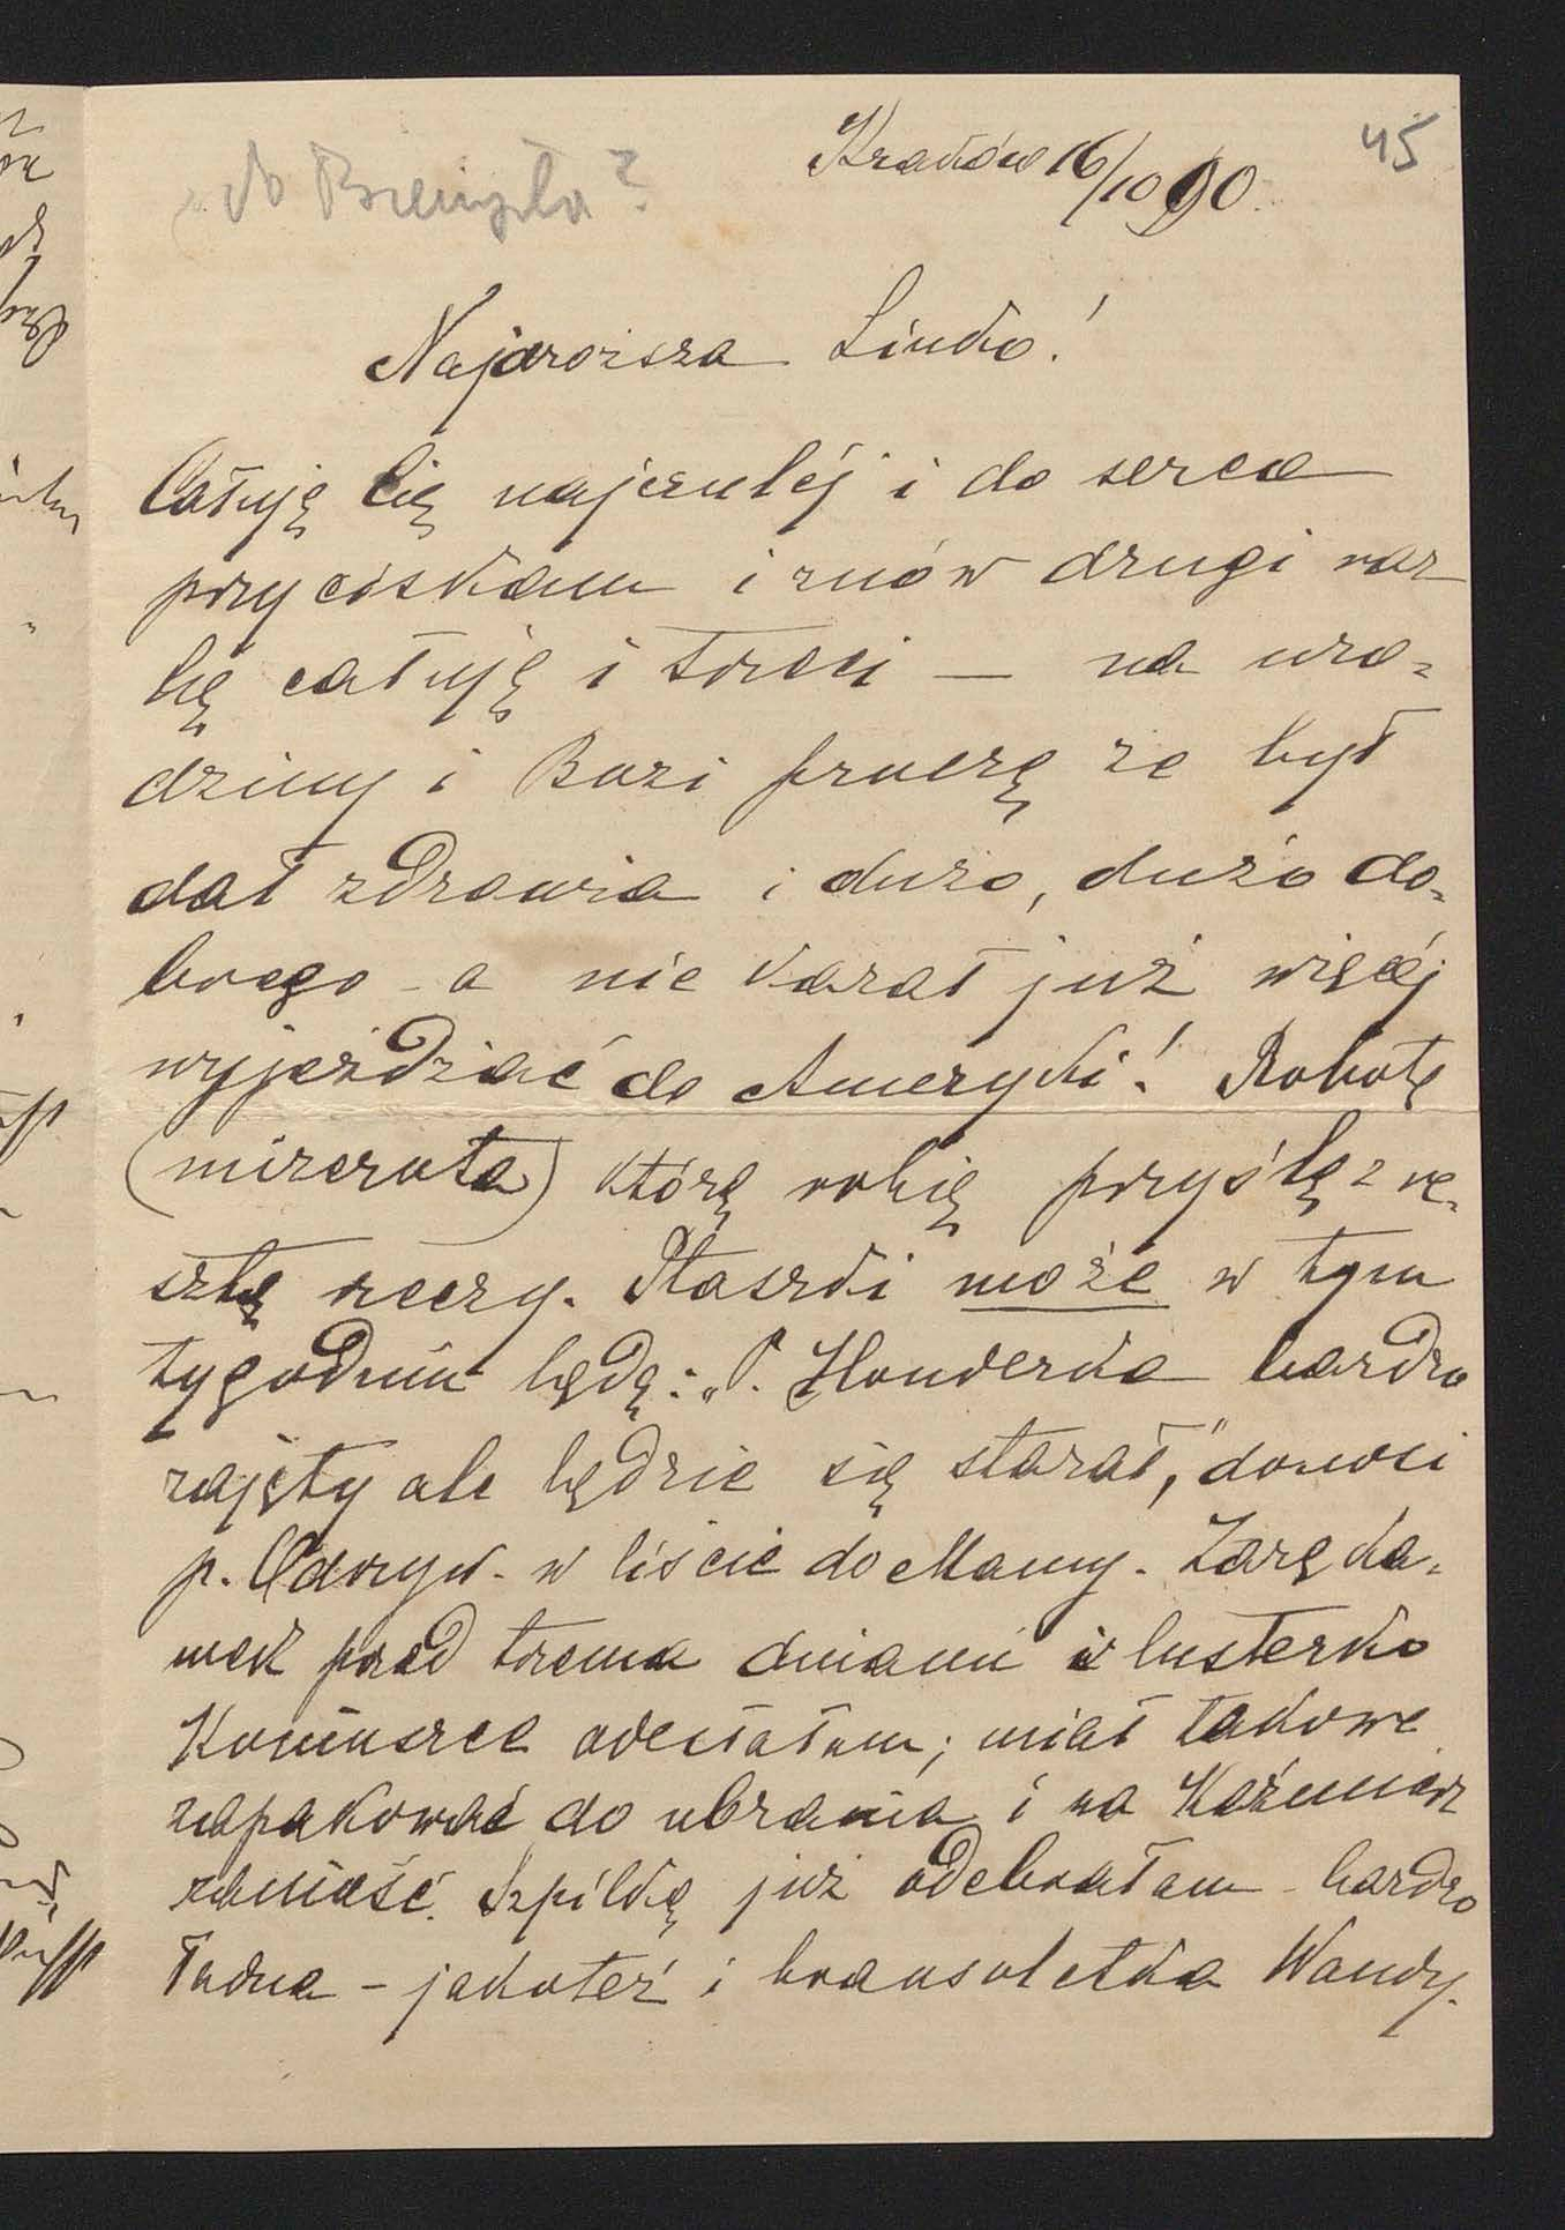 Kraków 16/10 90.
45
do
?
Najdroższa Linko!
Całuję Cię najczulej i do serca
przyciskam i znów drugi raz
Cię całuję i trzeci — na uro=
dziny i Bozi proszę że był
dał zdrowia i dużo, dużo do=
brego - a nie kazał już więcej
wyjeżdżać do Ameryki! Robotę
(mizerota) którą robię przyślę z re=
sztą rzeczy. Ptaszki może w tym
tygodniu będą: „P. Honderka bardzo
zajęty ale będzie się starał," donosi
p. Odrzyw. w liście do Mamy. Zaręka=
wek przed trema dniami i lusterko
Komusrce odesłałam; miał takowe
zapakować do ubrania i na Kaźmierz
zanieść. Szpilkę już odebrałam - bardzo
ładna - jakoteż i bransoletka Wandy.